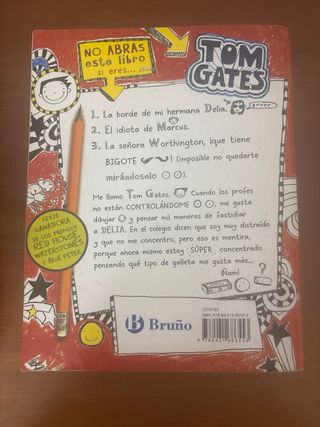 NO ABRAS
este libro
si eres...
TOM
GATES
1. La borde de mi hermana Delia.
2. El idiota de Marcus.
3. La señora Worthington, ¡que tiene
BIGOTE ! (imposible no quedarte
mirándoselo).
Me llamo Tom Gates. Cuando los profes
no están CONTROLÁNDOME, me gusta
dibujar y pensar mil maneras de fastidiar
a DELIA. En el colegio dicen que soy muy distraído
y que no me concentro, pero eso es mentira,
porque ahora mismo estoy SÚPER concentrado
pensando qué tipo de galleta me gusta más...
¡Ñam!
?
SERIE
GANADORA
DE LOS PREMIOS
RED HOUSE,
WATERSTONES
Y BLUE PETER
B Bruño